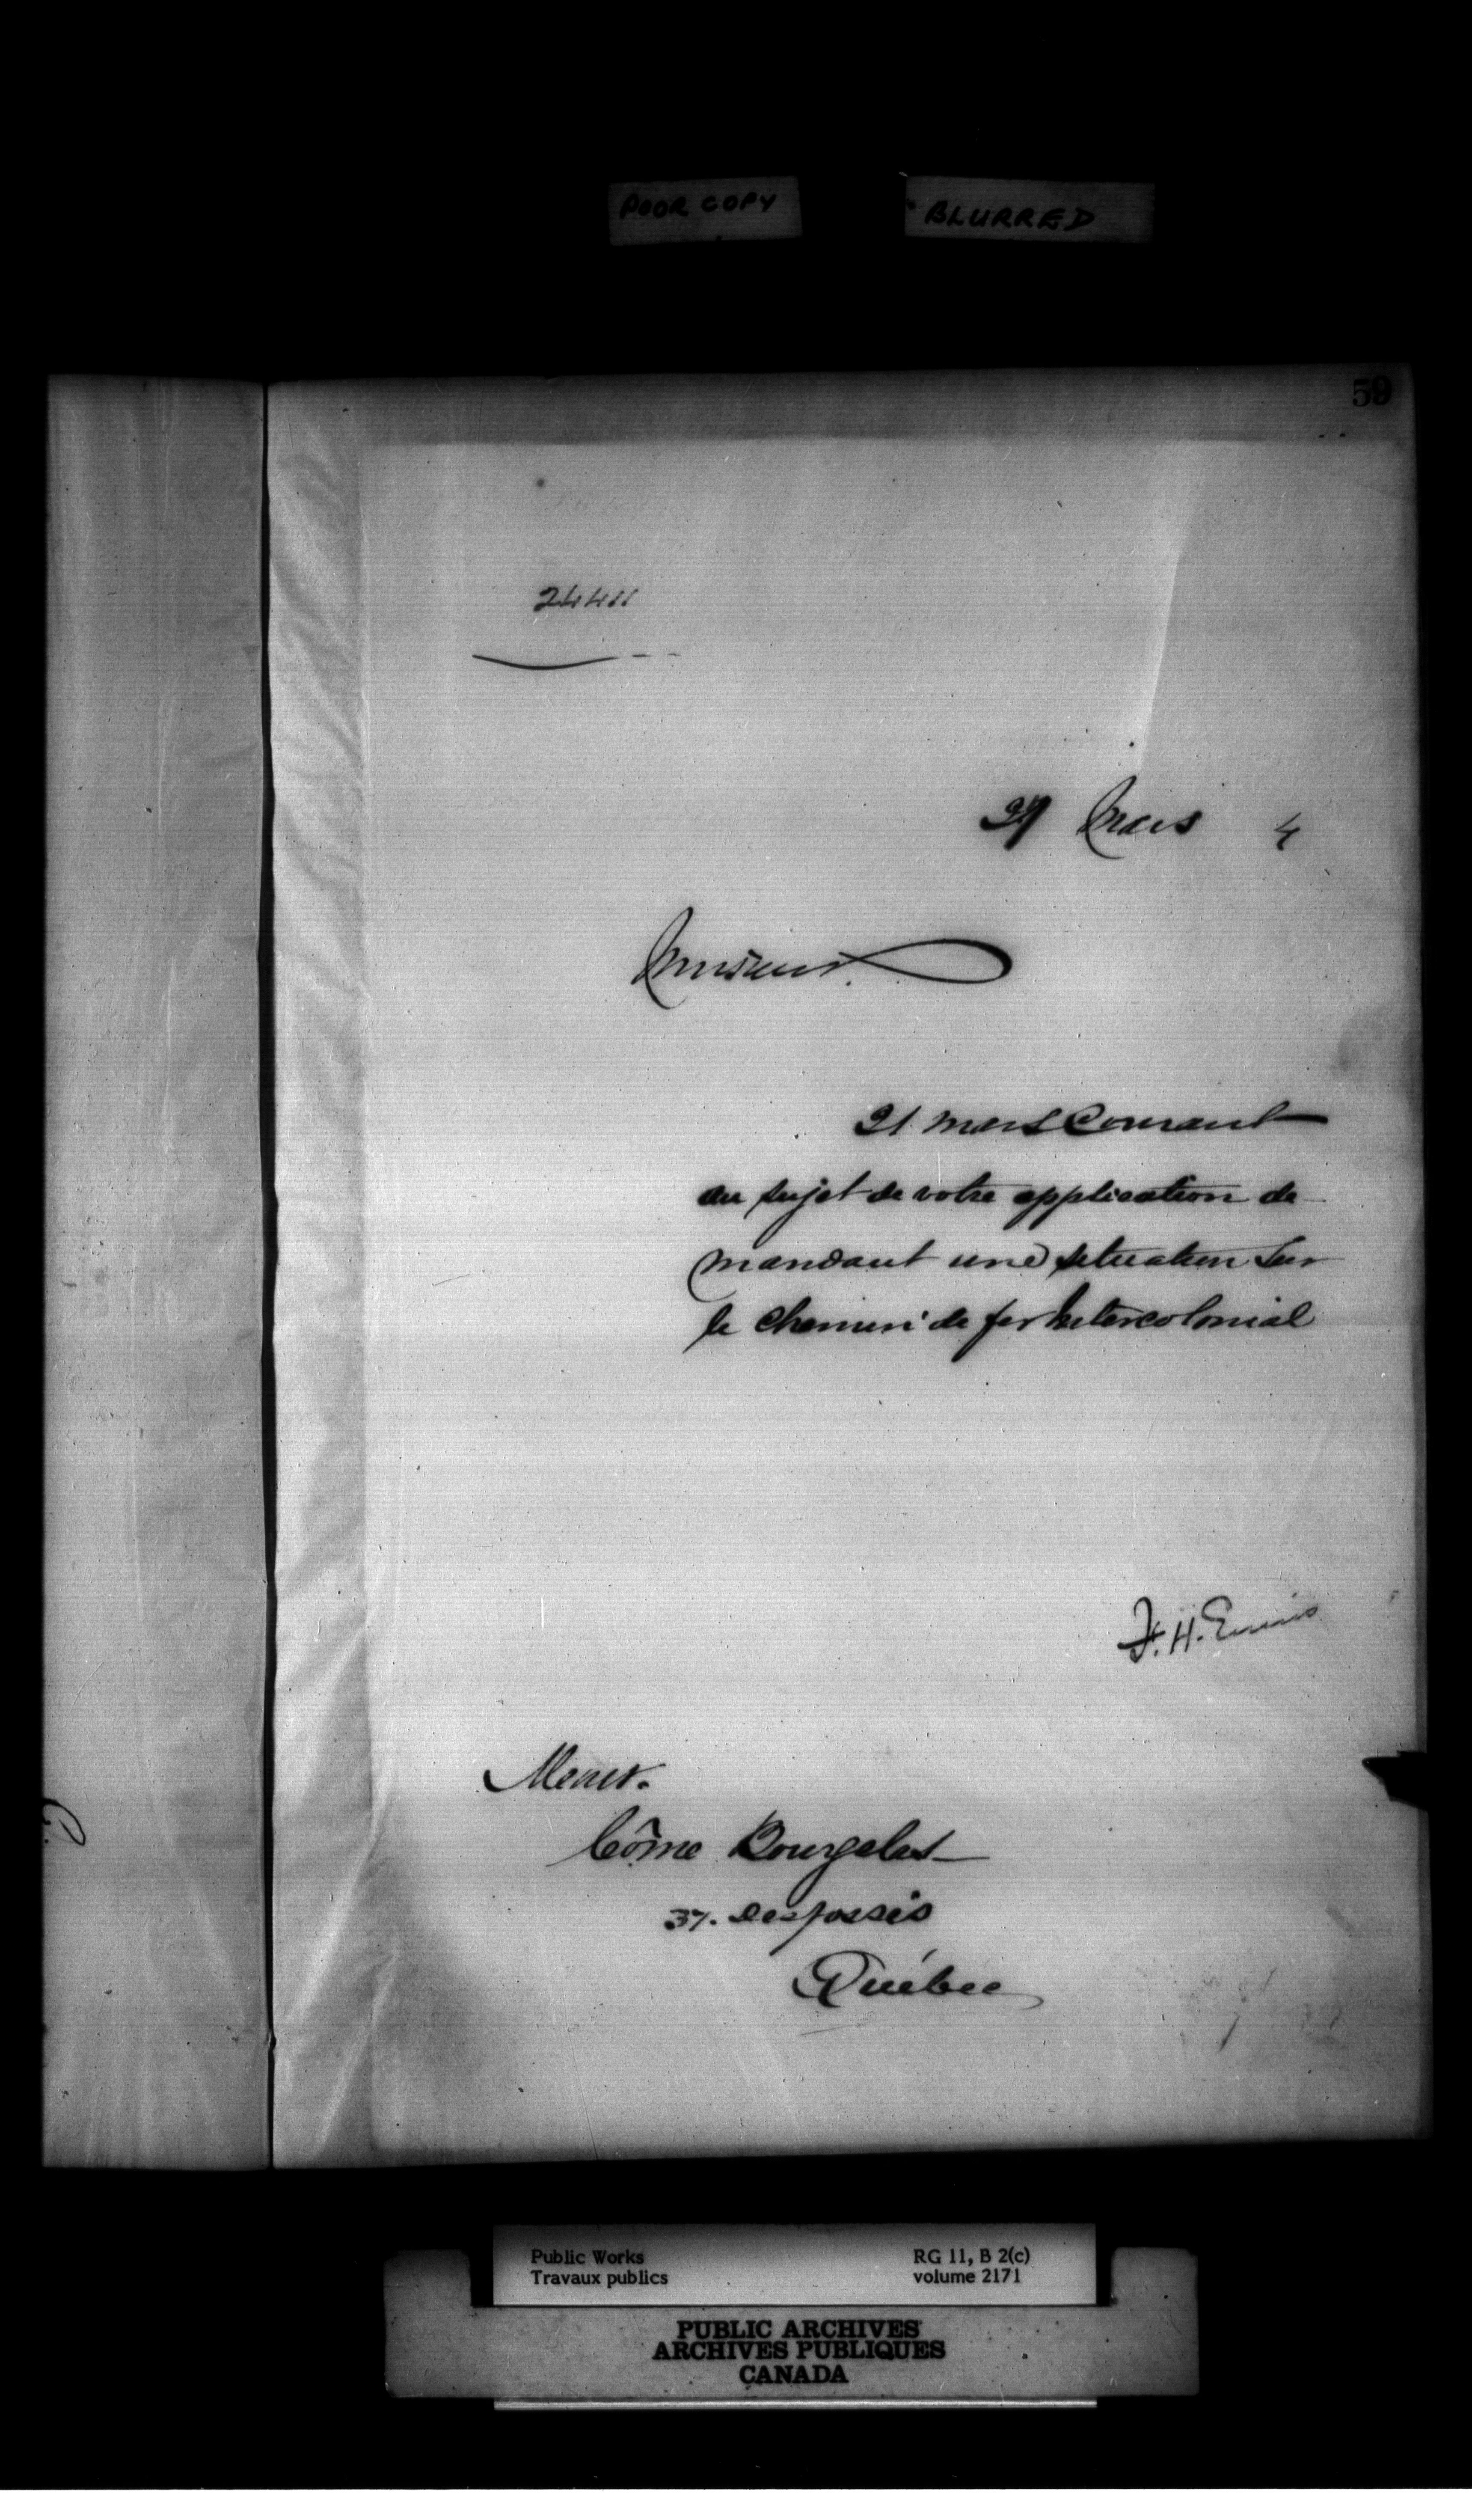 POOR COPY
BLURRED
59
24411
27 Mars 4
Monsieur.
21 mars Courant
au sujet de votre application de
mandant une situation sur
le Chemin de fer Intercolonial
F. H. Ennis
Monsr.
Côme Bourgelas
37. Desfossés
Québec
Public Works
Travaux publics
RG 11, B 2(c)
volume 2171
PUBLIC ARCHIVES
ARCHIVES PUBLIQUES
CANADA